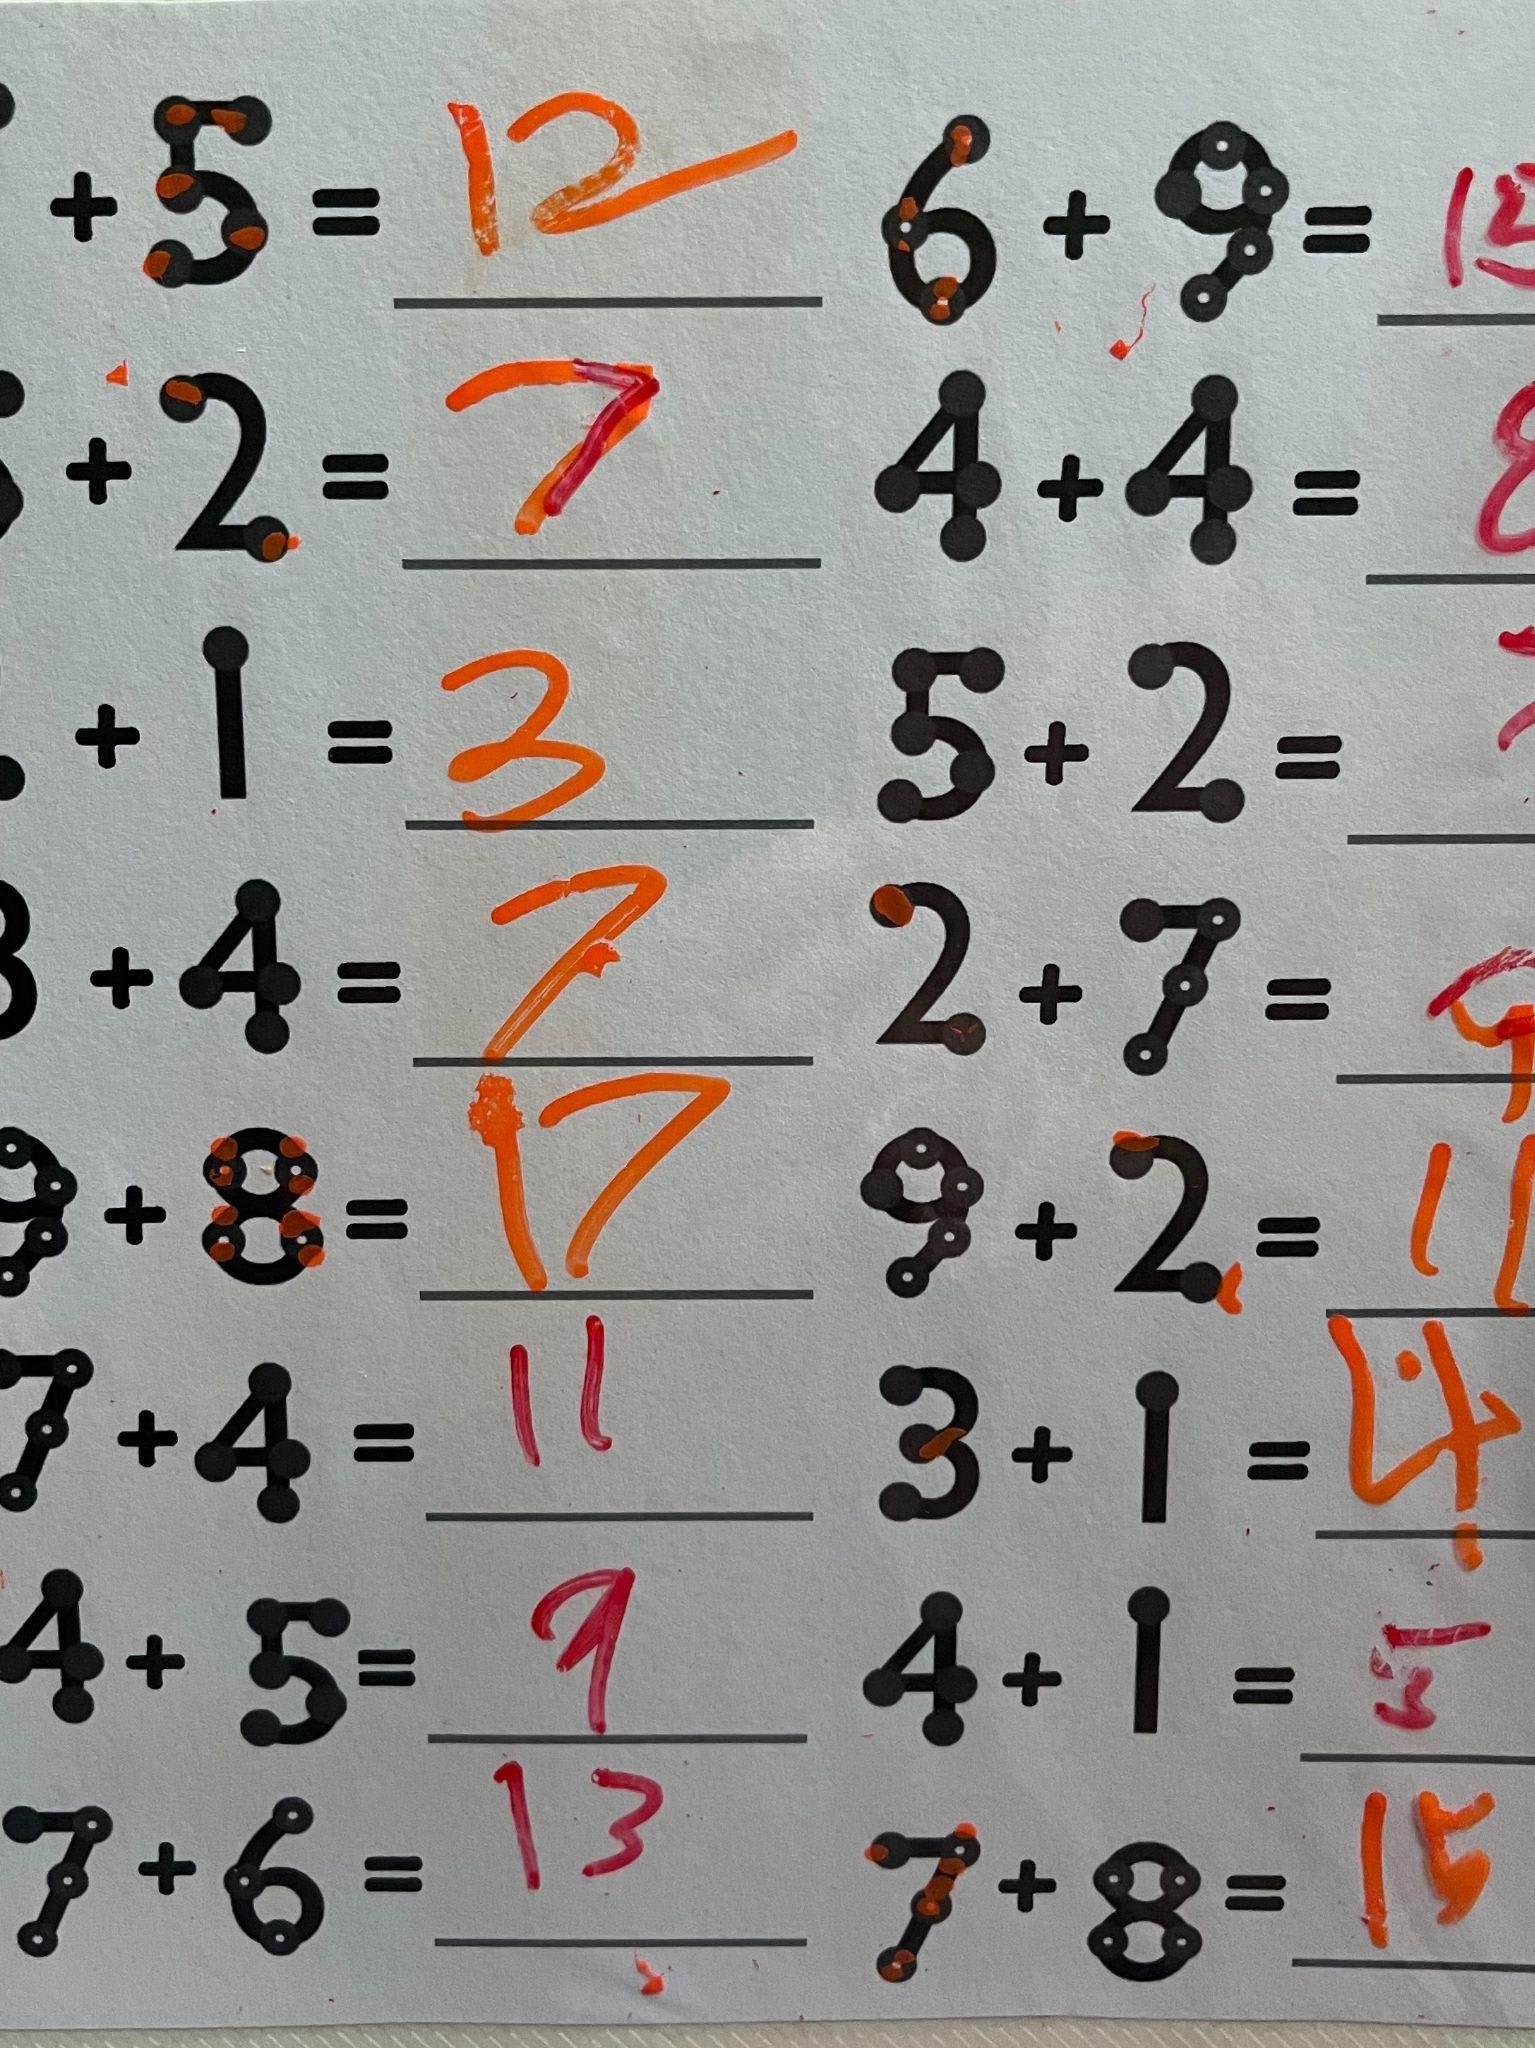 + 5 = 12 6 + 9 = 15
+ 2 = 7 4 + 4 = 8
+ 1 = 3 5 + 2 =
3 + 4 = 7 2 + 7 = 9
9 + 8 = 17 9 + 2 = 11
7 + 4 = 11 3 + 1 = 4
4 + 5 = 9 4 + 1 = 5
7 + 6 = 13 7 + 8 = 15